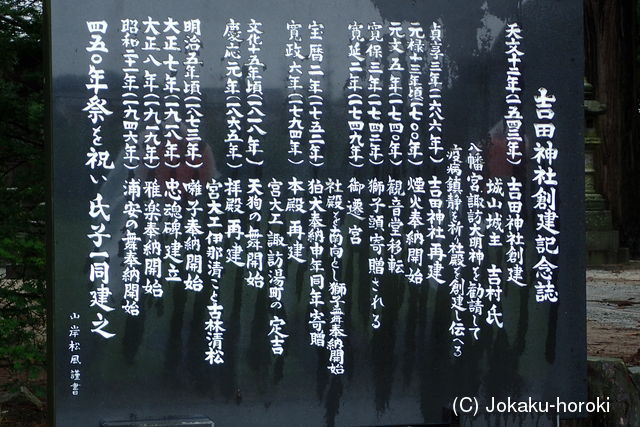 吉田神社創建記念誌
天文十二年(一五四三年) 吉田神社創建
城山城主 吉村氏
八幡宮諏訪大明神を勧請して
疫病鎮静を祈社殿を創建し伝へる
貞享三年(一六八六年) 吉田神社再建
元禄十三年頃(一七〇〇年) 煙火奉納開始
元文五年(一七四〇年) 観音堂移転
寛保三年(一七四三年) 獅子頭寄贈される
寛延二年(一七四九年) 御遷宮
社殿を南向とし獅子舞奉納開始
宝暦二年(一七五二年) 狛犬奉納申年同年寄贈
寛政六年(一七九四年) 本殿再建
宮大工諏訪湯町の定吉
文化十五年頃(一八一八年) 天狗の舞開始
慶応元年(一八六五年) 拝殿再建
宮大工伊那清こと古林清松
明治五年頃(一八七三年) 囃子奉納開始
大正七年(一九一八年) 忠魂碑建立
大正八年(一九一九年) 雅楽奉納開始
昭和二十一年(一九四六年) 浦安の舞奉納開始
四五〇年祭を祝い氏子一同建之
山岸松風謹書
(C) Jokaku-horoki